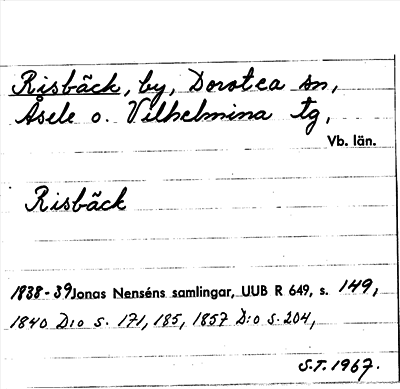 Risbäck, by, Dorotea sn,
Åsele o. Vilhelmina tg,
Vb. län.
Risbäck
1838-39 Jonas Nenséns samlingar, UUB R 649, s. 149,
1840 D:o s. 171, 185, 1857 D:o s. 204,
S.T. 1967.